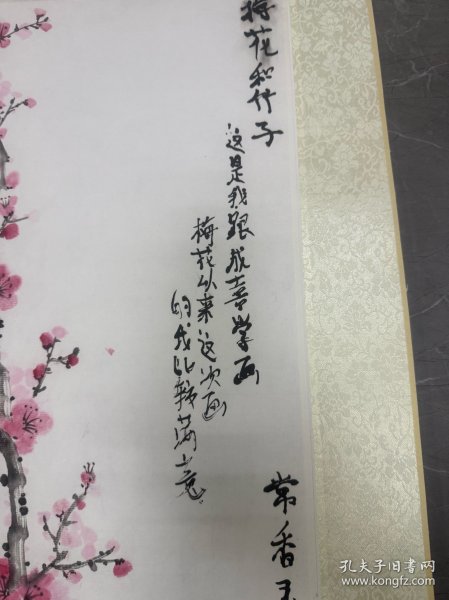 梅花和竹子
这是我跟成喜学画
梅花以来这次画
的我比较满意
常香玉
孔夫子旧书网
www.kongfz.com